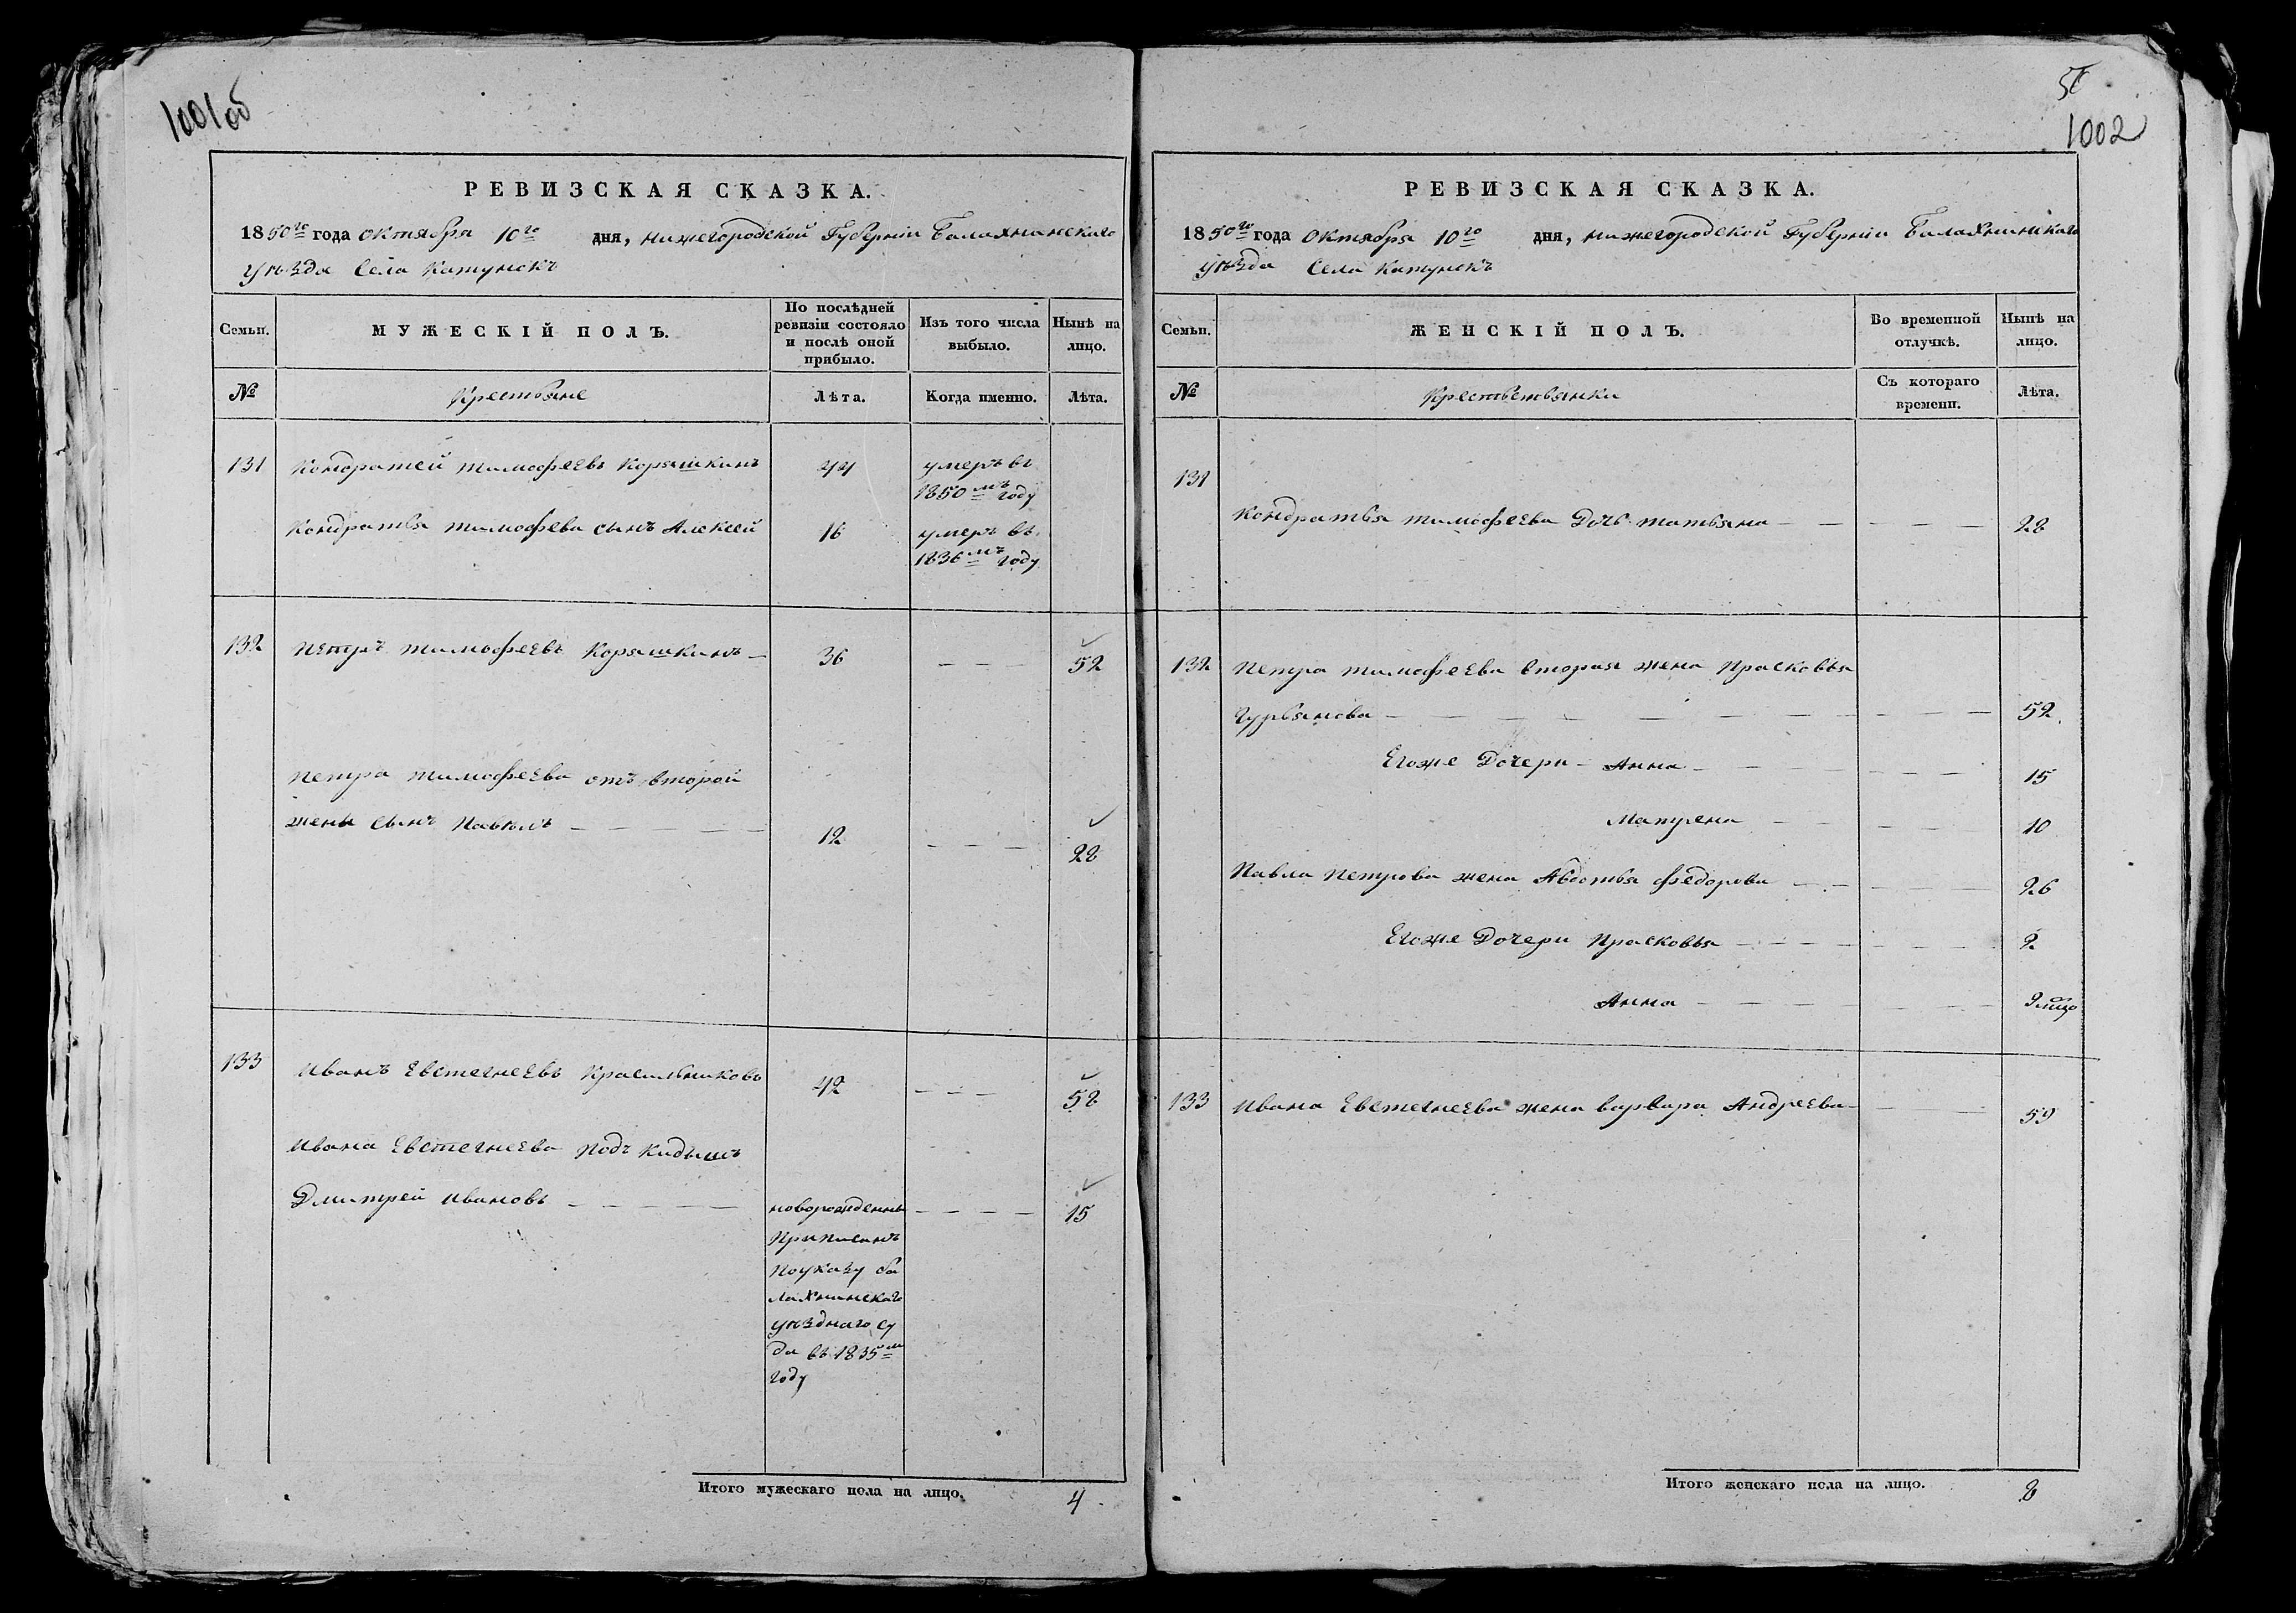 1001об
РЕВИЗСКАЯ СКАЗКА.
1850го года октября 10го дня, нижегородской Губернiи Балахнинскаго
уѣзда Села Катунокъ
Семьи.
МУЖЕСКІЙ ПОЛЪ.
По послѣдней ревизіи состояло и послѣ оной прибыло.
Изъ того числа выбыло.
Нынѣ на лицо.
№
Крестьяне
Лѣта.
Когда именно.
Лѣта.
131 Кондратей тимофеевъ Коряшкинъ 44 умеръ въ
1850мъ году
Кондратья тимофева сынъ Алексей 16 умеръ въ
1836мъ году
132 Петръ тимофеевъ Коряшкинъ — 36 — — — 52
Петра тимофеева отъ второй
жены сынъ Павелъ — — — — — 12 — — — 28
133 Иванъ Евстегнеевъ Красильниковъ 42 — — — 58
Ивана Евстегнеева подъ кидышъ
Дмитрей Ивановъ — — — — — новорожденны — — — — 15
Приписанъ
поуказу ба
лахнинскаго
уѣзднаго су
да въ 1835м
году
Итого мужескаго пола на лицо. 4
1002
РЕВИЗСКАЯ СКАЗКА.
1850го года Октября 10го дня, нижегородской Губернiи Балахнинскаго
уѣзда Села Катунокъ
Семьи.
ЖЕНСКІЙ ПОЛЪ.
Во временной отлучкѣ.
Нынѣ на лицо.
№
Крестьствянки
Съ котораго времени.
Лѣта.
131
Кондратья тимофеева Дочь татьяна — — — — — 28
132 Петра тимофеева вторая жена Прасковья
Гурьянова — — — — — — — — — — 52
Егоже Дочери — Анна — — — — — — 15
Матрена — — — — — 10
Павла Петрова жена Авдотья федорова — — — — 26
Егоже Дочери Прасковья — — — — — — 2
Анна — — — — — —
133 Ивана Евстегнеева жена варвара Андреева — — — 59
Итого женскаго пола на лицо. 8